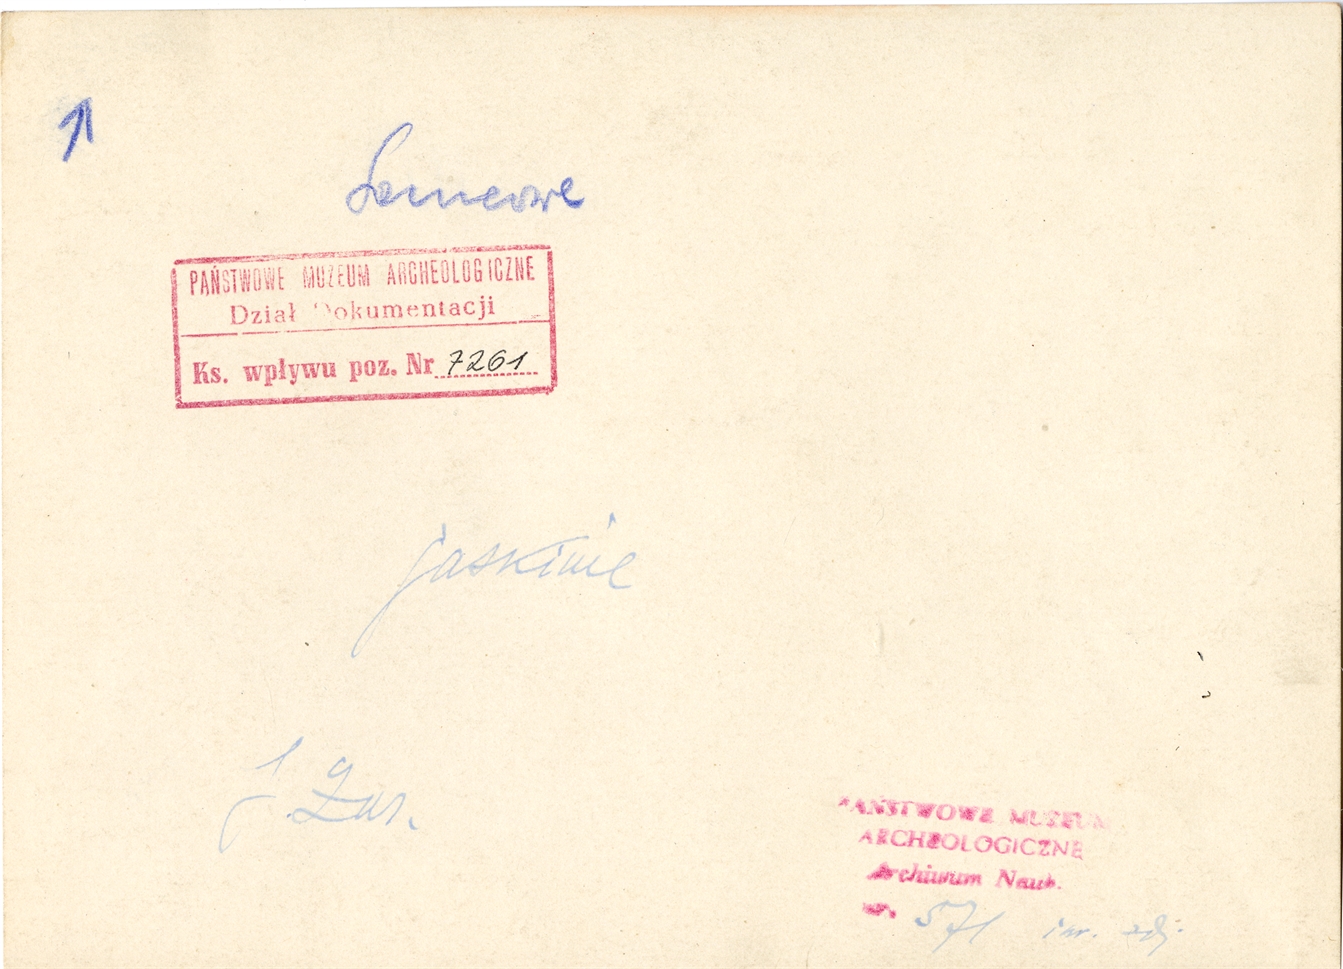 PAŃSTWOWE MUZEUM ARCHEOLOGICZNE
Dział Dokumentacji
Ks. wpływu poz. Nr 7261
jaskinie
PAŃSTWOWE MUZEUM
ARCHEOLOGICZNE
Archiwum Nauk.
nr. 571 inw. zdj.